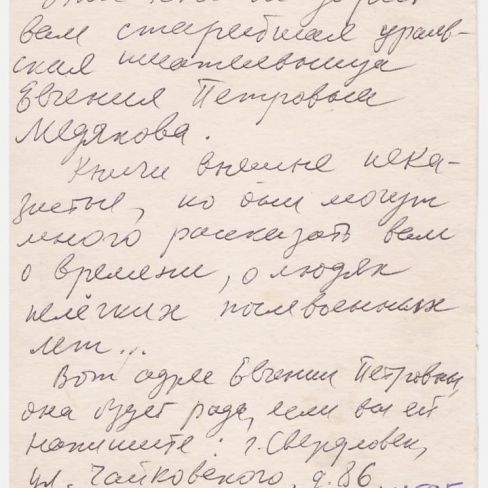 Эти книги дарит
вам старейшая ураль-
ская писательница
Евгения Петровна
Медякова.
Книги внешне нека-
зистые, но они могут
много рассказать вам
о времени, о людях
нелёгких послевоенных
лет...
Вот адрес Евгении Петровны,
она будет рада, если вы ей
напишите: г. Свердловск,
ул. Чайковского, д. 86,